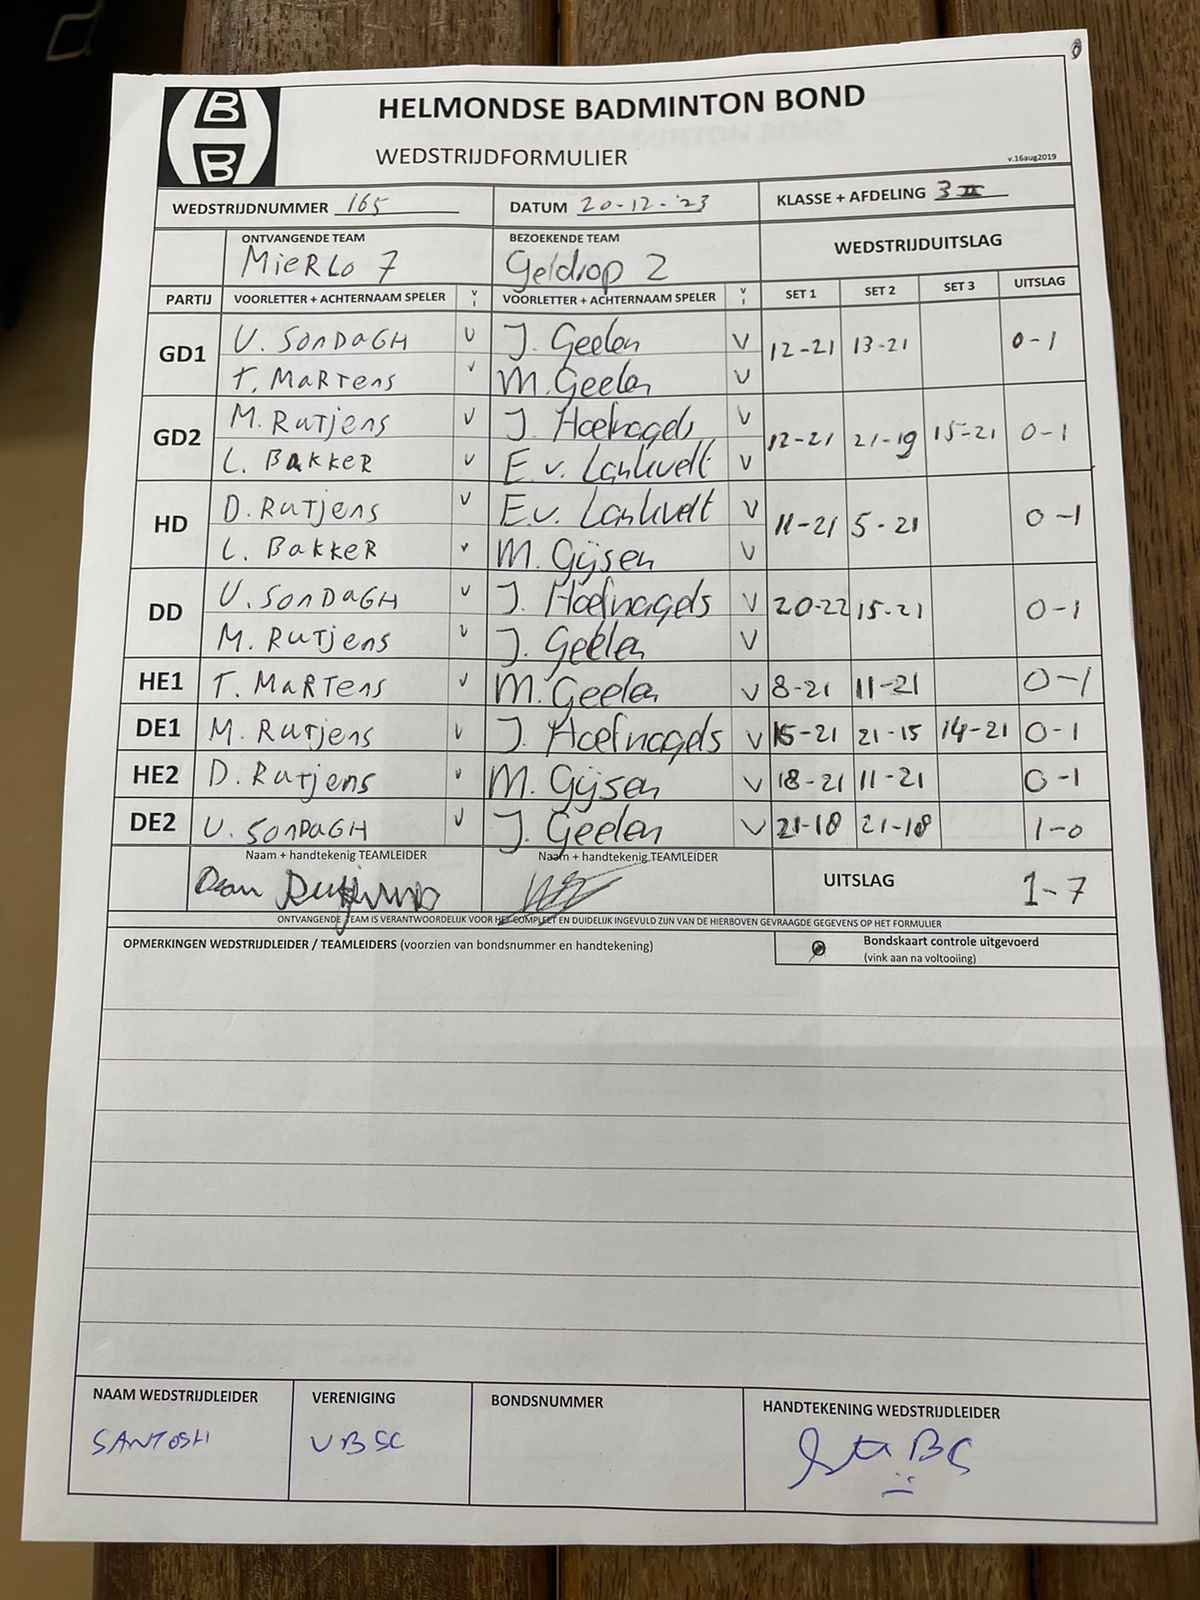 HELMONDSE BADMINTON BOND
WEDSTRIJDFORMULIER
v.16aug2019
WEDSTRIJDNUMMER 165 DATUM 20-12-'23 KLASSE + AFDELING 3 II
ONTVANGENDE TEAM BEZOEKENDE TEAM WEDSTRIJDUITSLAG
MIERLO 7 Geldrop 2
PARTIJ VOORLETTER + ACHTERNAAM SPELER V I VOORLETTER + ACHTERNAAM SPELER V I SET 1 SET 2 SET 3 UITSLAG
GD1 U. SONDAGH V J. Geelen V 12-21 13-21 0-1
T. MARTENS V M. Geelen V
GD2 M. RUTJENS V J. Hoefnagels V 12-21 21-19 15-21 0-1
L. BAKKER V E. v. Lankvelt V
HD D. RUTJENS V E.v. Lankvelt V 11-21 5-21 0-1
L. BAKKER V M. Gijsen V
DD U. SONDAGH V J. Hoefnagels V 20-22 15-21 0-1
M. RUTJENS V J. Geelen V
HE1 T. MARTENS V M. Geelen V 8-21 11-21 0-1
DE1 M. RUTJENS V J. Hoefnagels V 15-21 21-15 14-21 0-1
HE2 D. RUTJENS V M. Gijsen V 18-21 11-21 0-1
DE2 U. SONDAGH V J. Geelen V 21-18 21-18 1-0
Naam + handtekenig TEAMLEIDER Naam + handtekenig TEAMLEIDER UITSLAG 1-7
ONTVANGENDE TEAM IS VERANTWOORDELIJK VOOR HET COMPLEET EN DUIDELIJK INGEVULD ZIJN VAN DE HIERBOVEN GEVRAAGDE GEGEVENS OP HET FORMULIER
OPMERKINGEN WEDSTRIJDLEIDER / TEAMLEIDERS (voorzien van bondsnummer en handtekening) Bondskaart controle uitgevoerd
(vink aan na voltooiing)
NAAM WEDSTRIJDLEIDER VERENIGING BONDSNUMMER HANDTEKENING WEDSTRIJDLEIDER
SANTOSH VBSC